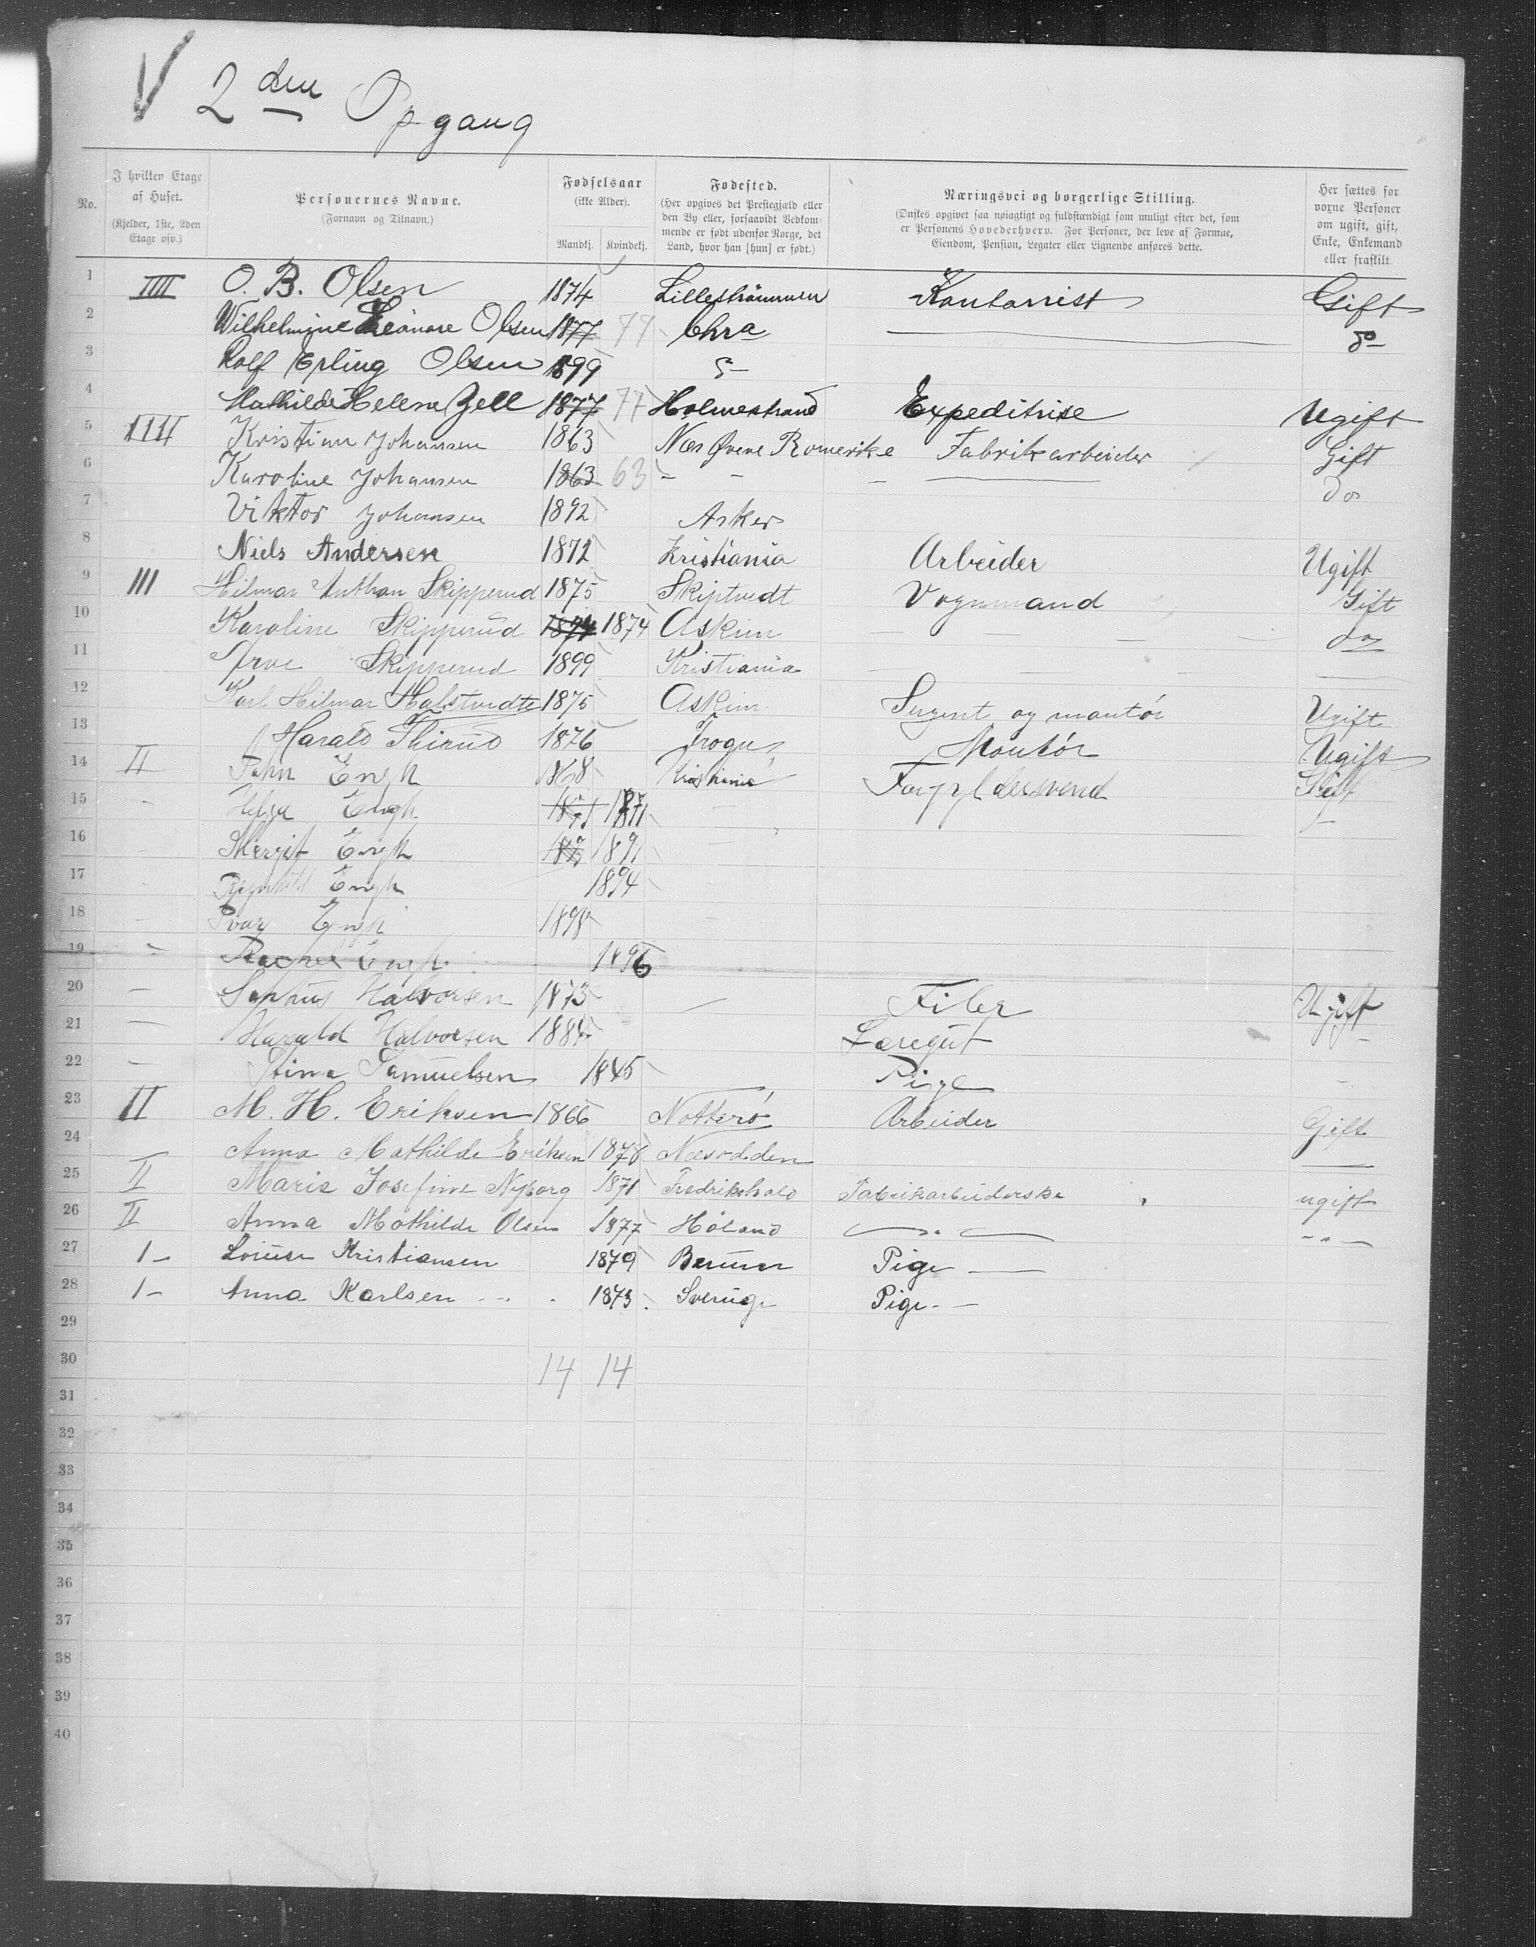 V 2den Opgang
No.
I hvilken Etage af Huset. (Kjelder, 1ste, 2den Etage osv.)
Personernes Navne. (Fornavn og Tilnavn.)
Fødselsaar (ikke Alder). Mandkj. Kvindekj.
Fødested. (Her opgives det Prestegjæld eller den By eller, forsaavidt Vedkommende er født udenfor Norge, det Land, hvor han [hun] er født.)
Næringsvei og borgerlige Stilling. (Ønskes opgivet saa nøiagtigt og fuldstændigt som muligt efter det, som er Personens Hovederhverv. For Personer, der leve af Formue, Eiendom, Pension, Legater eller Lignende anføres dette.
Her sættes for voxne Personer om ugift, gift, Enke, Enkemand eller fraskilt
1 IIII O. B. Olsen 1874 Lillestrømmen Kontorist Gift
2 Wilhelmine Leonore Olsen 1877 77 Chra — do
3 Rolf Erling Olsen 1899 "
4 Mathilde Helene Zell 1877 77 Holmestrand Expeditrise Ugift
5 IIII Kristian Johansen 1863 Nes Øvere Romerike Fabrikarbeider Gift
6 Karoline Johansen 1863 63 - - - do
7 Viktor Johansen 1892 Asker
8 Niels Andersen 1872 Kristiania Arbeider Ugift
9 III Hilmar Anthon Skipperud 1875 Skiptvedt Vognmand Gift
10 Karoline Skipperud 1874 1874 Askim — do
11 Arve Skipperud 1899 Kristiania —
12 Karl Hilmar Halstvedt 1875 Askim og montør Ugift
13 Harald Thirud 1876 Frogn Montør Ugift
14 II John Engh 1868 Kristiania Forgyldersvend Gift
15 - Helga Engh 1871 1871
16 - Margit Engh 1891
17 - Engh 1894
18 - Ivar Engh 1898
19 - Ragna Engh 1896
20 - Sophus Halvorsen 1873 Filer Ugift
21 - Harald Halvorsen 1884 Læregut -
22 - Stina Samuelsen 1845 Pige -
23 II M. H. Eriksen 1866 Nøtterø Arbeider Gift
24 Anna Mathilde Eriksen 1878 Næsodden —
25 II Marie Josefine Nyborg 1871 Fredrikshald Fabrikarbeiderske ugift
26 II Anna Mathilde Olsen 1877 Høland — " — - " -
27 1- Lovise Kristiansen 1879 Berum Pige —
28 1- Anna Karlsen 1873 Sverige Pige -
29
30 14 14
31
32
33
34
35
36
37
38
39
40